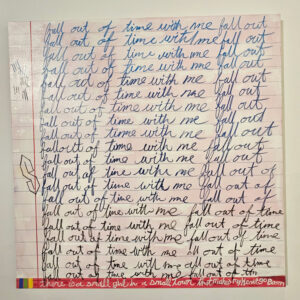 fall out of time with me fall out
fall out of time with me fall out
fall out of time with me fall out
fall out of time with me fall out
fall out of time with me fall out
fall out of time with me fall out
fall out of time with me fall out
fall out of time with me fall out
fall out of time with me fall out
fall out of time with me fall out
fall out of time with me fall out
fall out of time with me fall out of
fall out of time with me fall out of
fall out of time with me fall out of
fall out of time with me fall out of time
fall out of time with me fall out of time
fall out of time with me fall out of time
fall out of time with me all out of time
fall out of time with me fall out of time
fall out of time with me fall out of
there is a small girl in a small town